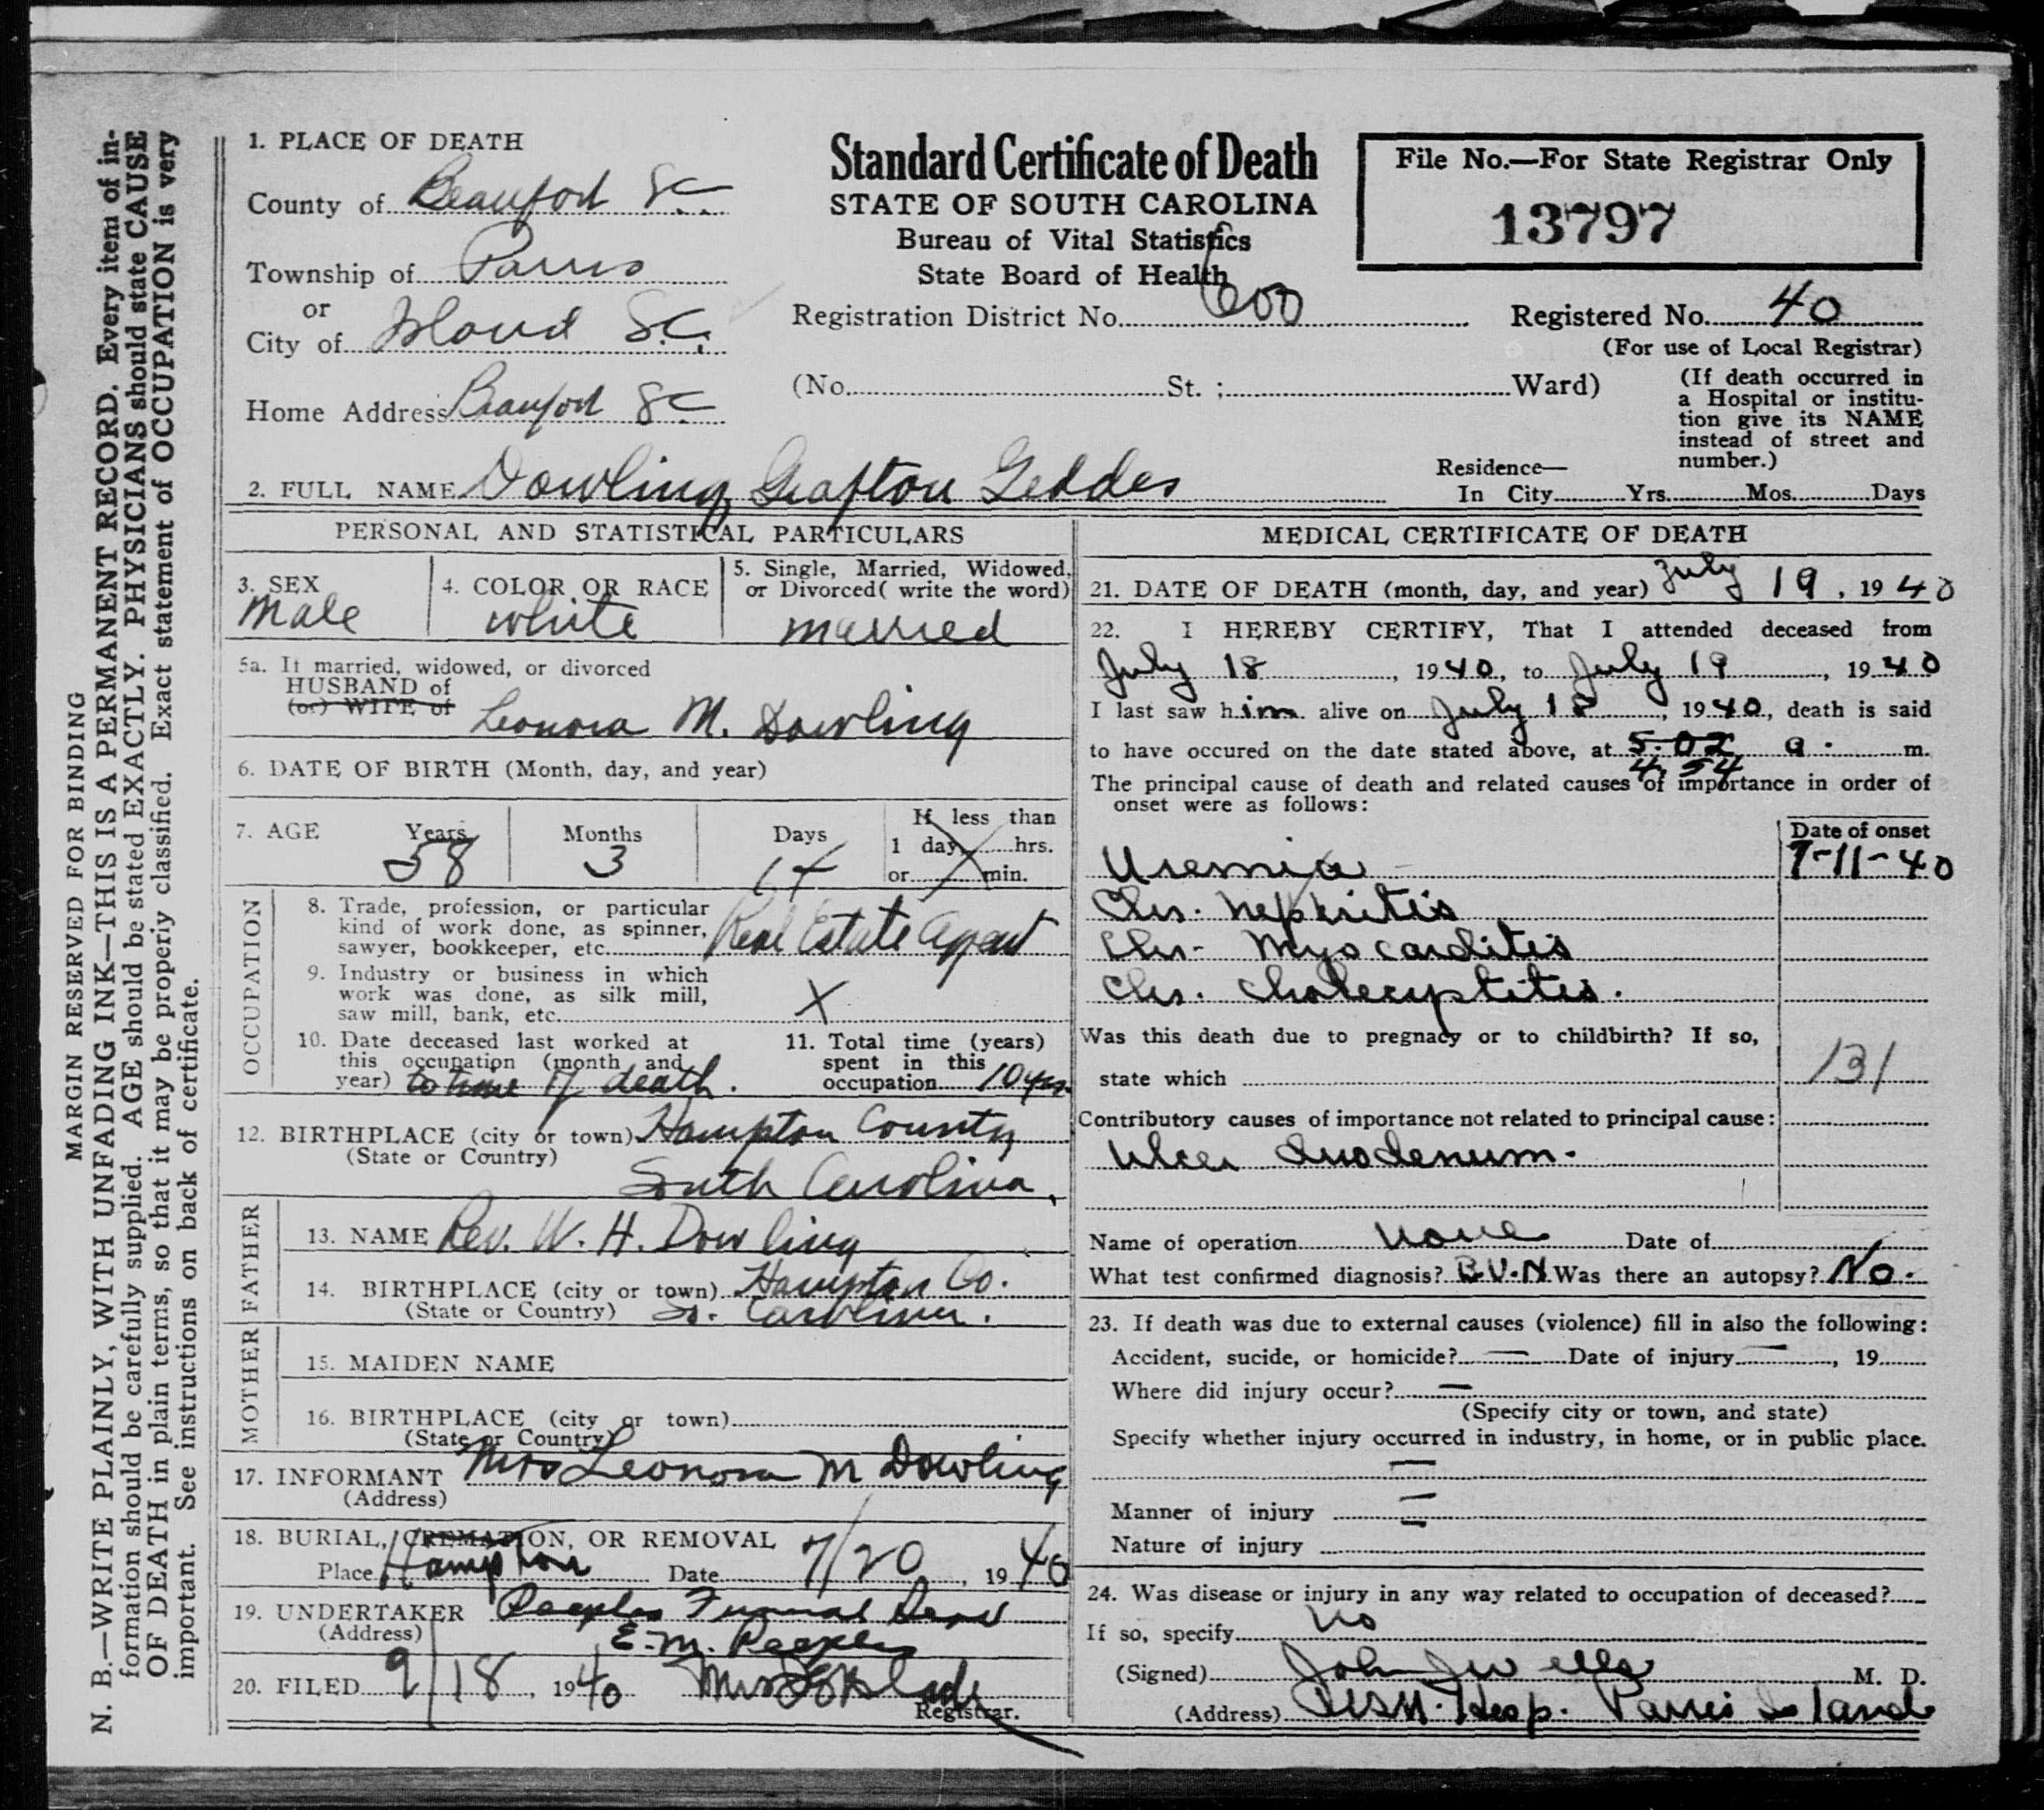 MARGIN RESERVED FOR BINDING
N. B.—WRITE PLAINLY, WITH UNFADING INK—THIS IS A PERMANENT RECORD. Every item of in-
formation should be carefully supplied. AGE should be stated EXACTLY. PHYSICIANS should state CAUSE
OF DEATH in plain terms, so that it may be properly classified. Exact statement of OCCUPATION is very
important. See instructions on back of certificate.
1. PLACE OF DEATH
County of Beaufort S.C.
Township of Parris
or
City of Island S.C.
Home Address Beaufort S.C.
Standard Certificate of Death
STATE OF SOUTH CAROLINA
Bureau of Vital Statistics
State Board of Health
Registration District No. 600
File No.—For State Registrar Only
13797
Registered No. 40
(For use of Local Registrar)
(No. St. ; Ward)
(If death occurred in
a Hospital or institu-
tion give its NAME
instead of street and
number.)
2. FULL NAME Dowling Grafton Geddes
Residence—
In City Yrs. Mos. Days
PERSONAL AND STATISTICAL PARTICULARS
3. SEX
Male
4. COLOR OR RACE
White
5. Single, Married, Widowed,
or Divorced( write the word)
Married
5a. If married, widowed, or divorced
HUSBAND of
(or) WIFE of
Leonora M. Dowling
6. DATE OF BIRTH (Month, day, and year)
7. AGE
Years
58
Months
3
Days
14
If less than
1 day, hrs.
or min.
OCCUPATION
8. Trade, profession, or particular
kind of work done, as spinner,
sawyer, bookkeeper, etc. Real Estate Agent
9. Industry or business in which
work was done, as silk mill,
saw mill, bank, etc. X
10. Date deceased last worked at
this occupation (month and
year) to time of death.
11. Total time (years)
spent in this
occupation 10 yrs.
12. BIRTHPLACE (city or town) Hampton County
(State or Country) South Carolina.
FATHER
13. NAME Rev. W. H. Dowling
14. BIRTHPLACE (city or town) Hampton Co.
(State or Country) So. Carolina.
MOTHER
15. MAIDEN NAME
16. BIRTHPLACE (city or town)
(State or Country)
17. INFORMANT Mrs Leonora M Dowling
(Address)
18. BURIAL, CREMATION, OR REMOVAL
Place Hampton Date 7/20, 1940
19. UNDERTAKER Peeples Funeral
(Address) E. M. Peeples
20. FILED 9/18, 1940 Mrs
Registrar.
MEDICAL CERTIFICATE OF DEATH
21. DATE OF DEATH (month, day, and year) July 19, 1940
22. I HEREBY CERTIFY, That I attended deceased from
July 18, 1940, to July 19, 1940
I last saw him alive on July 18, 1940, death is said
to have occured on the date stated above, at 5:02 a. m.
4.54
The principal cause of death and related causes of importance in order of
onset were as follows:
Date of onset
Uremia 7-11-40
Chr. Nephritis
Chr. Myocarditis
Chr. Cholecystitis.
Was this death due to pregnacy or to childbirth? If so,
state which
131
Contributory causes of importance not related to principal cause:
Ulcer duodenum.
Name of operation None Date of
What test confirmed diagnosis? B.U.N. Was there an autopsy? No.
23. If death was due to external causes (violence) fill in also the following:
Accident, sucide, or homicide? — Date of injury —, 19
Where did injury occur? —
(Specify city or town, and state)
Specify whether injury occurred in industry, in home, or in public place.
—
Manner of injury —
Nature of injury —
24. Was disease or injury in any way related to occupation of deceased?
If so, specify No
(Signed) John J Wells M. D.
(Address) USN. Hosp. Parris Island